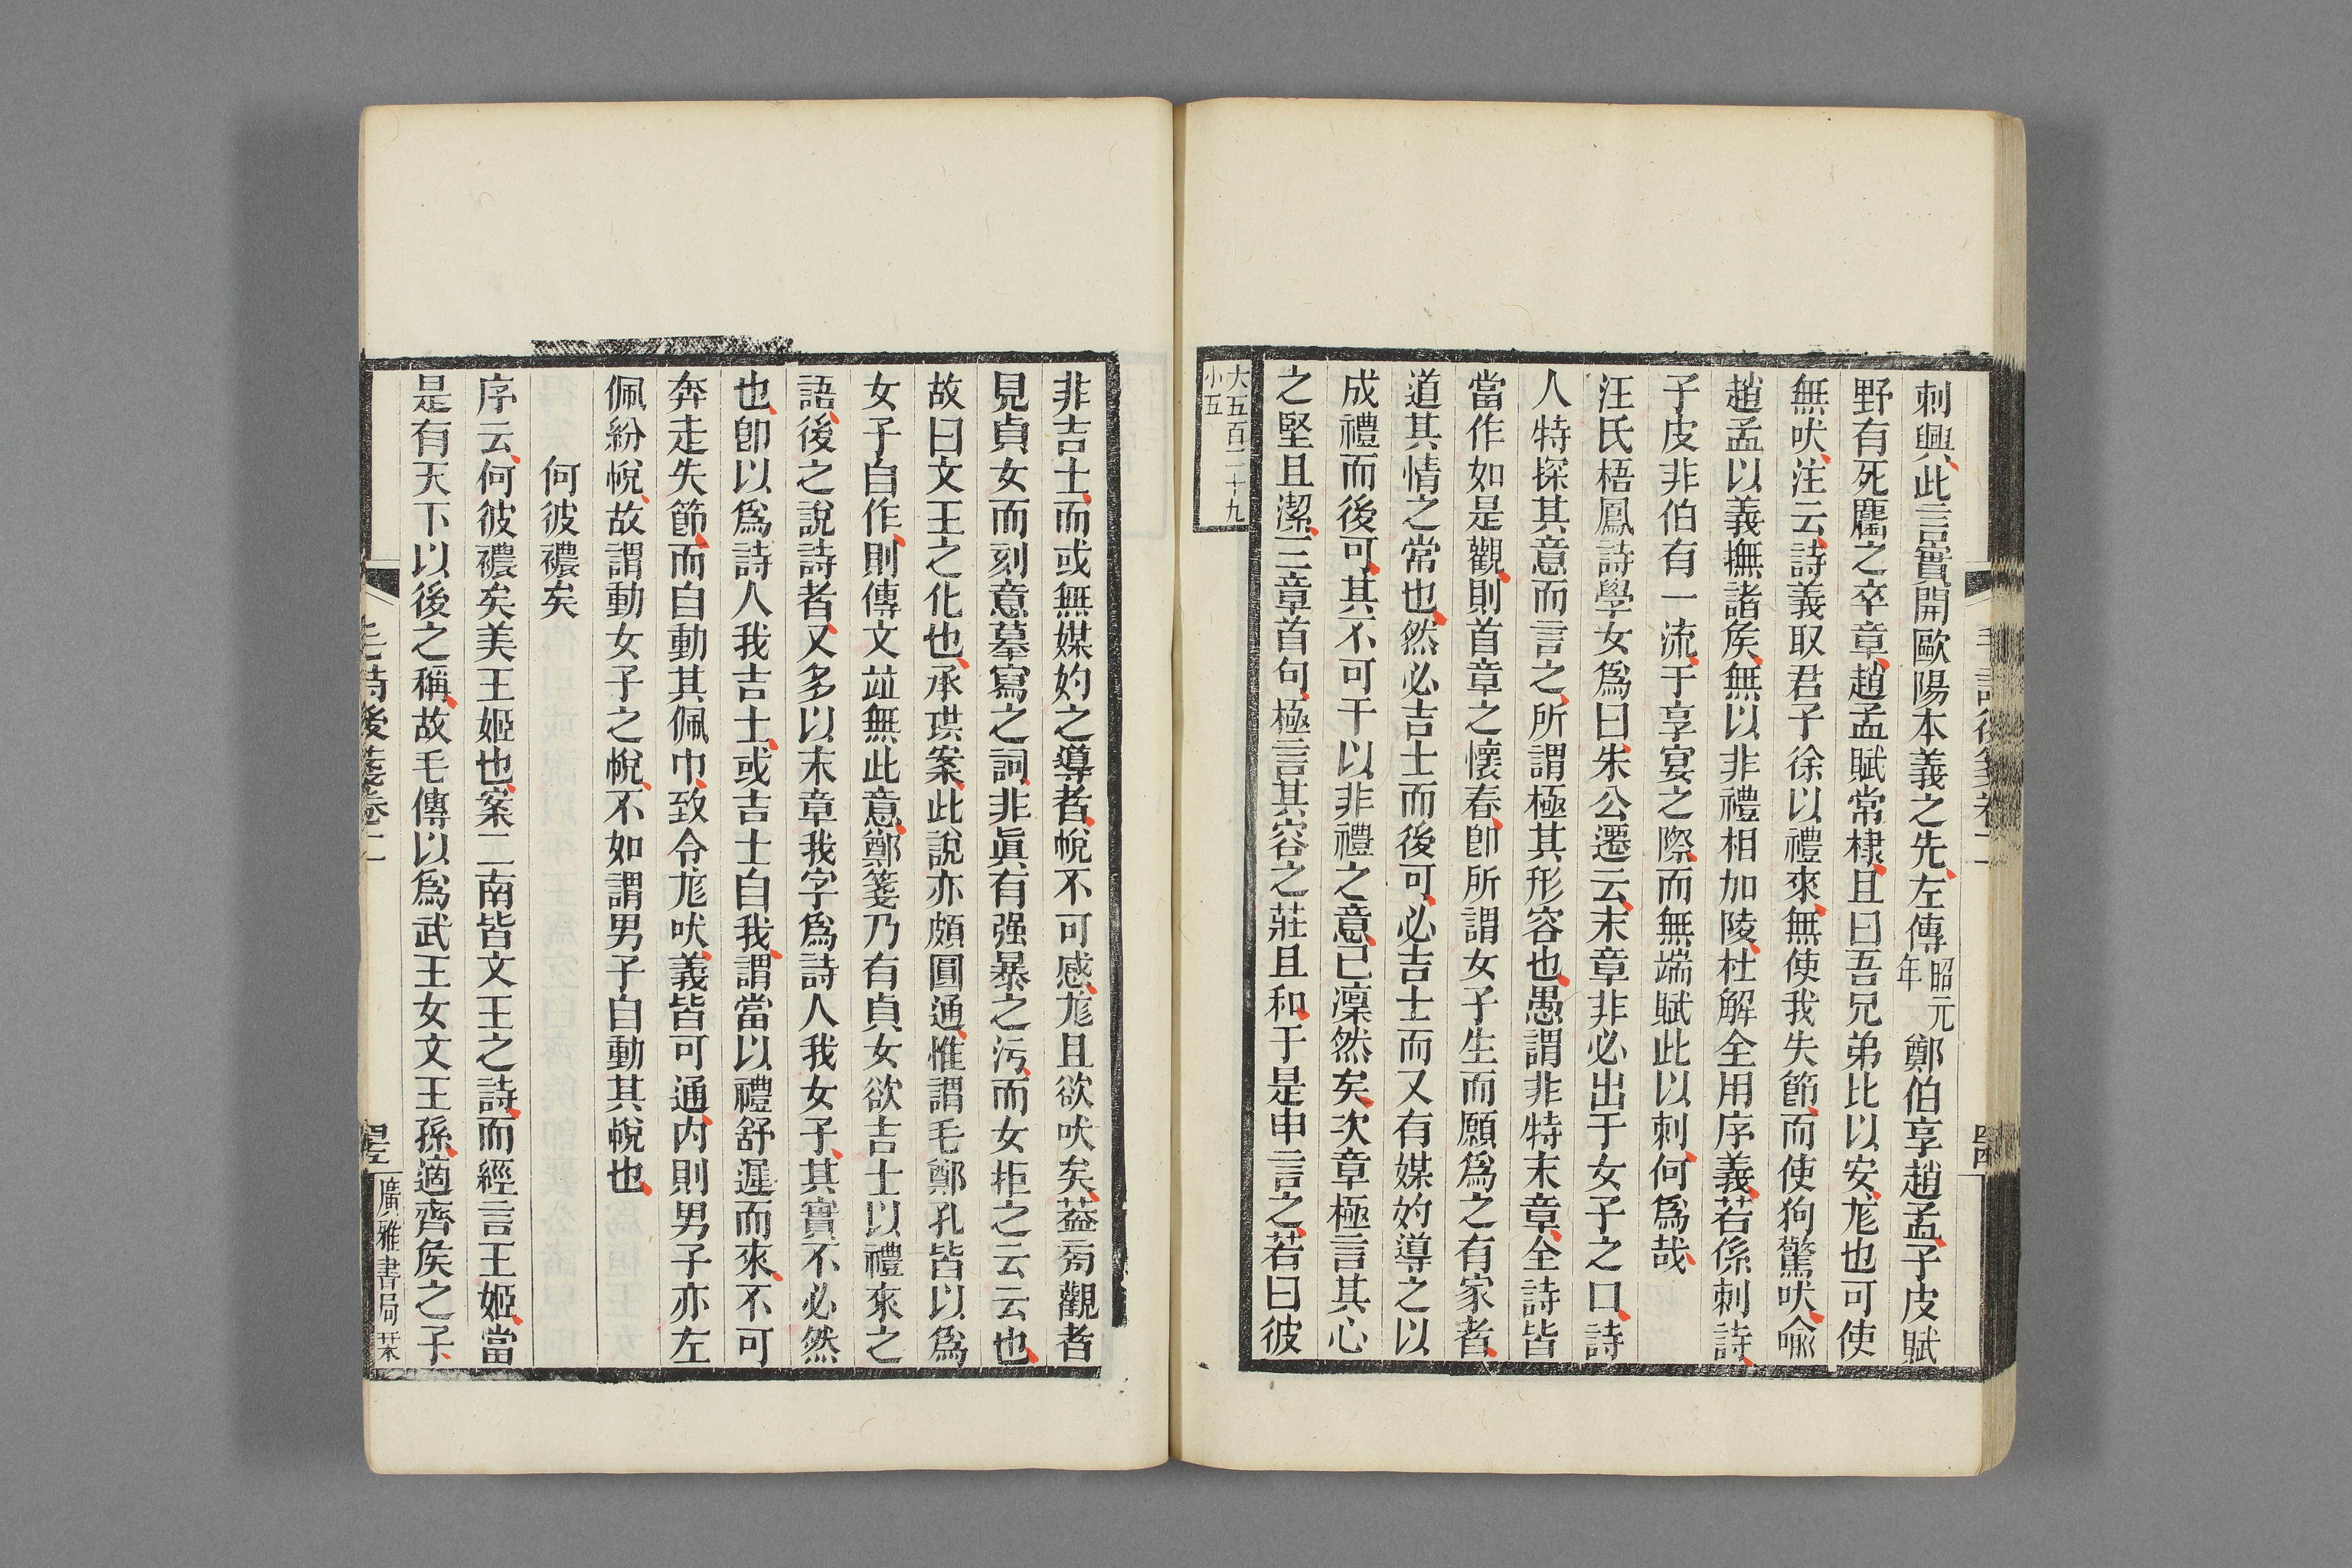 刺興此言實開歐陽本義之先左傳昭元年鄭伯享趙孟子皮賦
野有死麕之卒章趙孟賦常棣且曰吾兄弟比以安尨也可使
無吠注云詩義取君子徐以禮來無使我失節而使狗驚吠喩
趙孟以義撫諸矦無以非禮相加陵杜解全用序義若係刺詩
子皮非伯有一流于享宴之際而無端賦此以刺何爲哉
汪氏梧鳳詩學女爲曰朱公遷云末章非必出于女子之口詩
人特探其意而言之所謂極其形容也愚謂非特末章全詩皆
當作如是觀則首章之懷春卽所謂女子生而願爲之有家者
道其情之常也然必吉士而後可必吉士而又有媒妁導之以
成禮而後可其不可干以非禮之意已凜然矣次章極言其心
之堅且潔三章首句極言其容之莊且和于是申言之若曰彼
大五百二十九
小五
非吉士而或無媒妁之導者帨不可感尨且欲吠矣葢㫄觀者
見貞女而刻意摹寫之詞非眞有强暴之污而女拒之云云也
故曰文王之化也承珙案此說亦頗圓通惟謂毛鄭孔皆以爲
女子自作則傳文竝無此意鄭箋乃有貞女欲吉士以禮來之
語後之說詩者又多以末章我字爲詩人我女子其實不必然
也卽以爲詩人我吉士或吉士自我謂當以禮舒遲而來不可
奔走失節而自動其佩巾致令尨吠義皆可通內則男子亦左
佩紛帨故謂動女子之帨不如謂男子自動其帨也
何彼襛矣
序云何彼襛矣美王姬也案二南皆文王之詩而經言王姬當
是有天下以後之稱故毛傳以爲武王女文王孫適齊矦之子
毛詩後箋卷二
廣雅書局栞